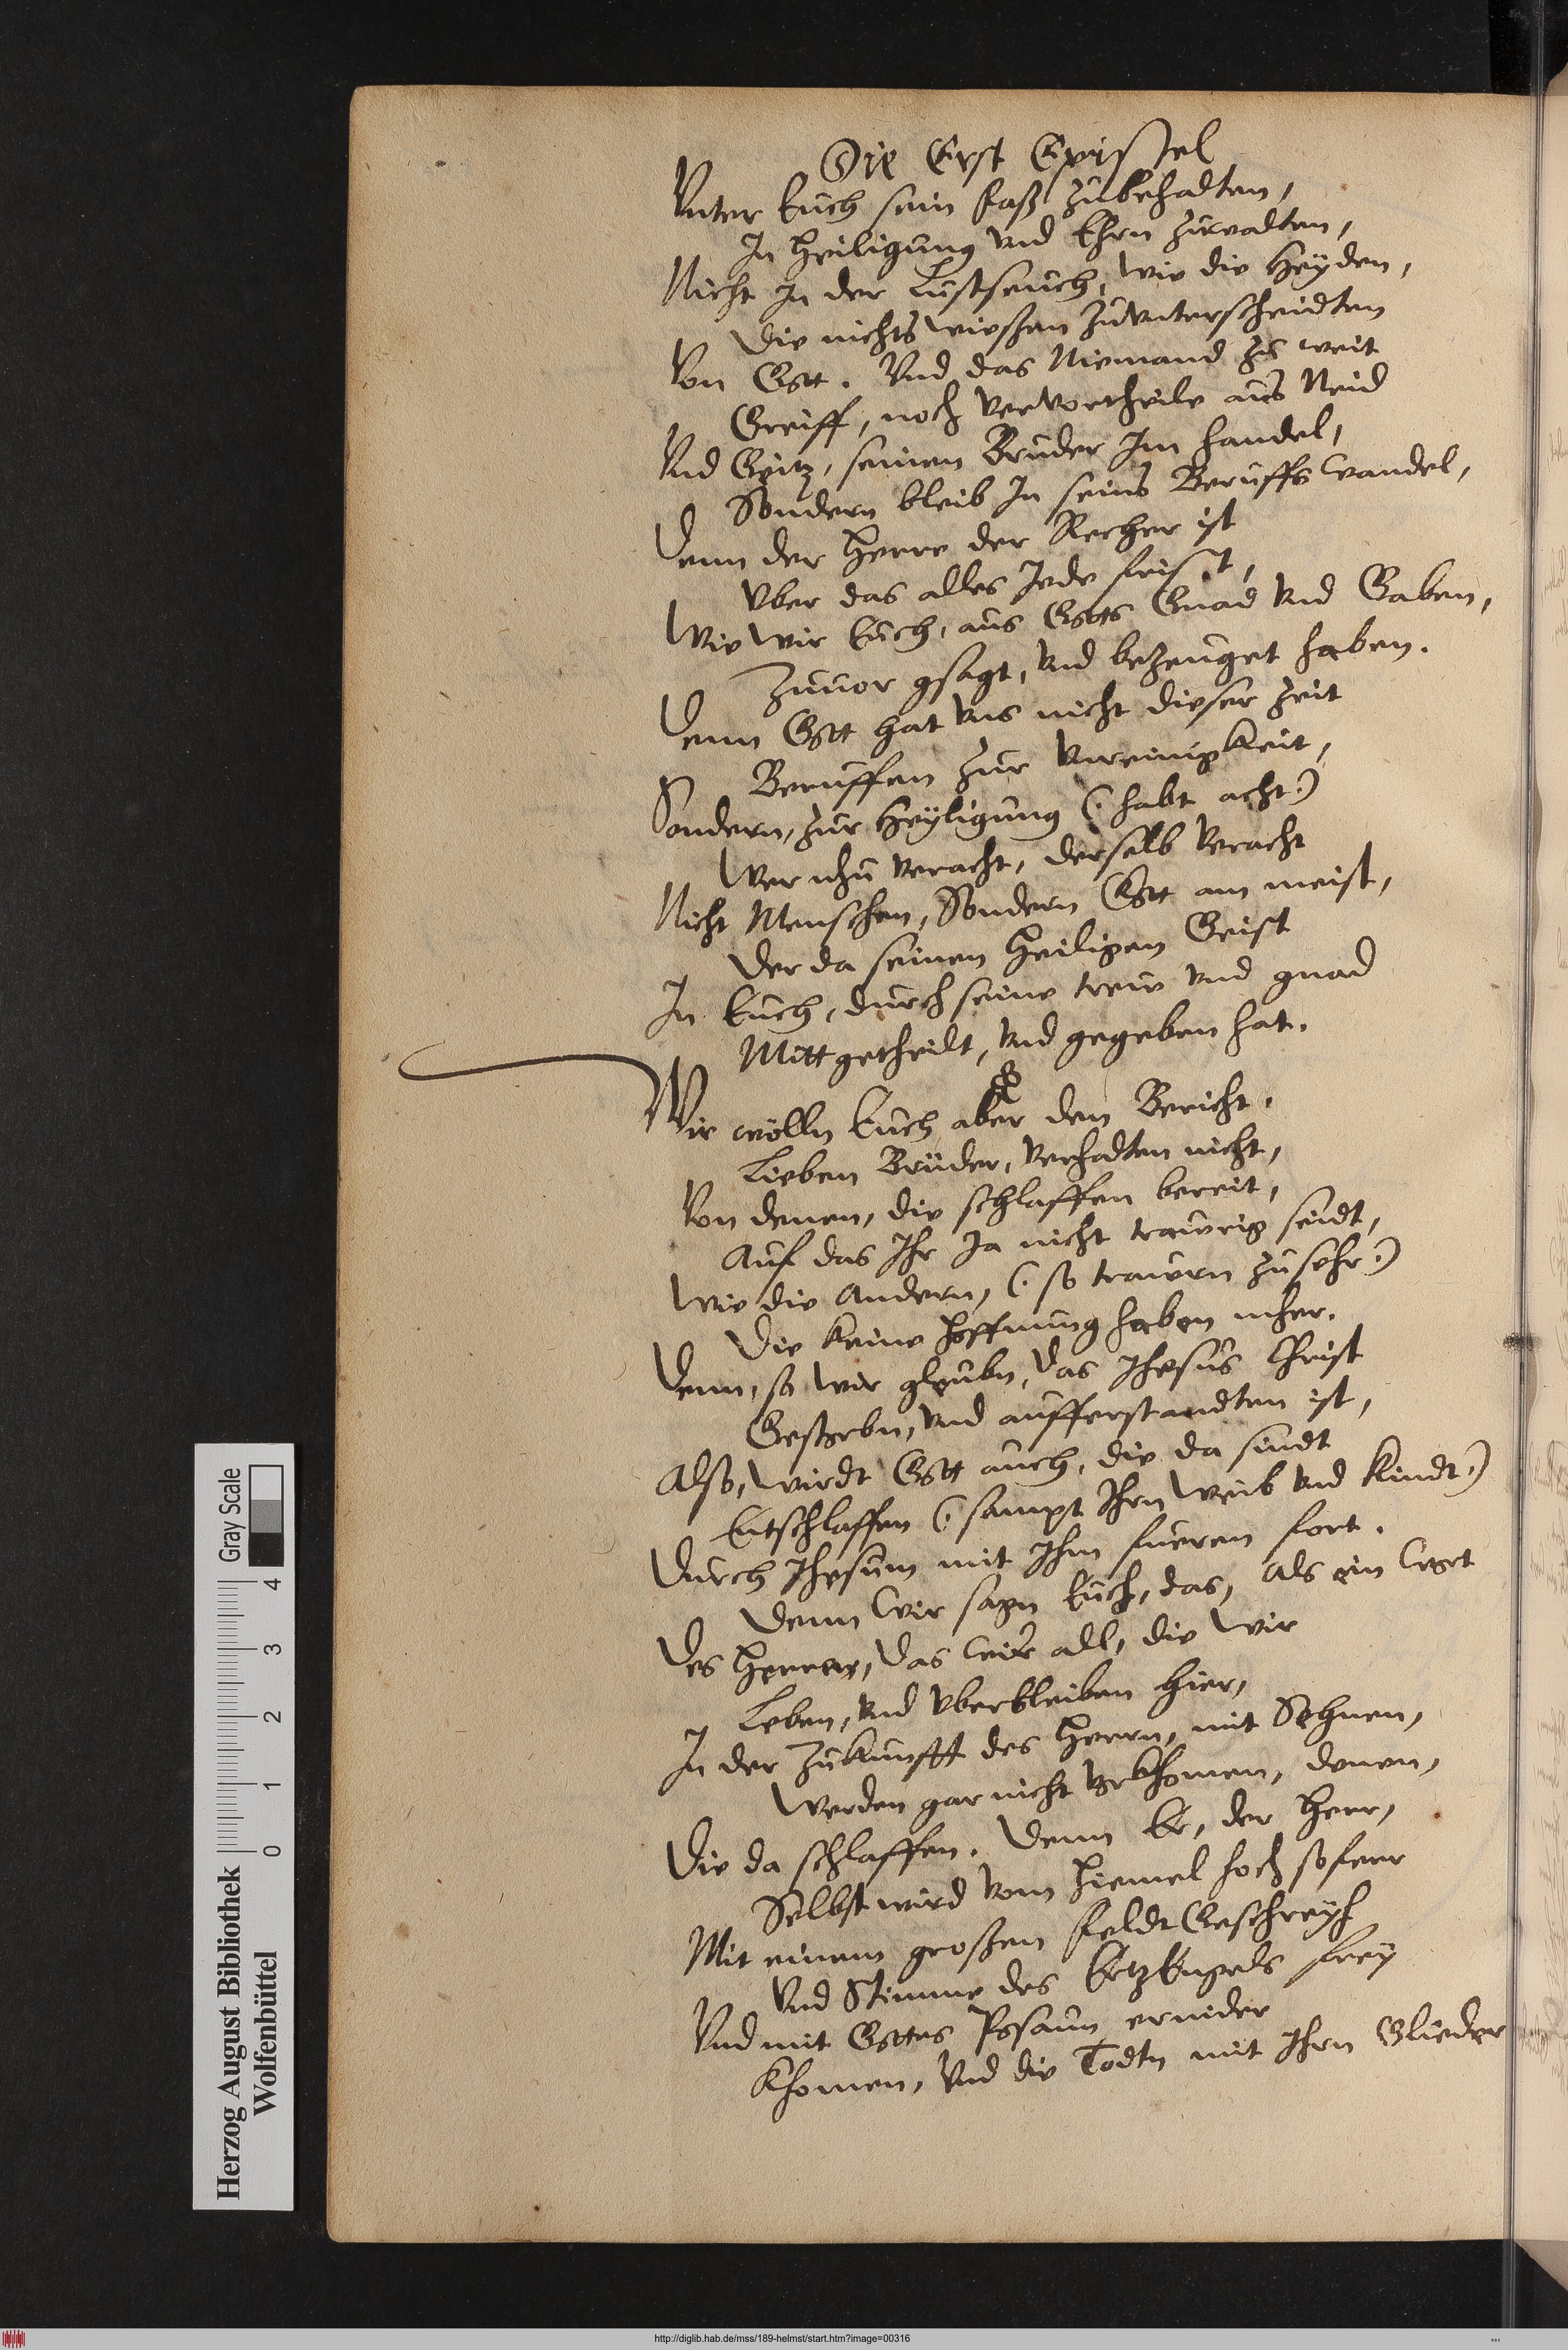 Die Erst Epistel
Vnter Euch sein faß zubehalten,
In heiligung vnd Ehrn zuwalten,
Nicht In der Lustseuch, wie die Heyden,
Die nichts wissen zuunterscheidten
Von Gott. Vnd das Niemand zu weit
Greiff, noch vervortheile aus Neid
Vnd Geitz, seinen Bruder Im handel,
Sondern bleib In seins Beruffs wandel,
Denn der Herre der Recher ist
Vber das alles Jede frist,
Wie wir Euch, aus Gotts Gnad vnd Gaben,
Zuuor gsagt, vnd bezeuget haben.
Denn Gott hat vns nicht dieser zeit
Beruffen zur vnreinigkeit,
Sondern, zur Heyligung (: habt acht:)
Wer nhu veracht, derselb veracht
Nicht Menschen, Sondern Gott am meist,
Der da seinen heiligen Geist
In Euch, durch seine treu vnd gnad
Mitt getheilt, vnd gegeben hat.
Wir wölln Euch aber den Bericht,
Lieben Brüder, verhalten nicht,
Von denen, die schlaffen bereit,
Auf das Ihr Ja nicht traurig seidt,
Wie die Andern, (: so traurn zu sehr:)
Die keine hoffnung haben mher.
Denn, so wir gleubn, das Ihesus Christ
Gestorbn, vnd aufferstandten ist,
Also, wirdt Gott auch, die da sindt
Entschlaffen (: sampt Ihrn Weib vnd Kindt:)
Durch Ihesum mit Ihm fueren fort.
Denn wir sagn Euch, das, als ein wort
Des Herren, Das wir all, die wir
Leben, vnd vberbleiben hier,
In der Zukunfft des Herrn, mit Sehnen,
Werden gar nicht vorkhomen, denen,
Die da schlaffen. Denn Er, der Herr,
Selbst wird vom Hiemel hoch so ferr
Mit einem großen feldt Geschreyh
Vnd Stimme des ErtzEngels frey
Vnd mit Gottes Posaun ernider
Khomen, Vnd die Todtn mit Ihrn Glieder
Herzog August Bibliothek
Wolfenbüttel
0 1 2 3 4
Gray Scale
http://diglib.hab.de/mss/189-helmst/start.htm?image=00316